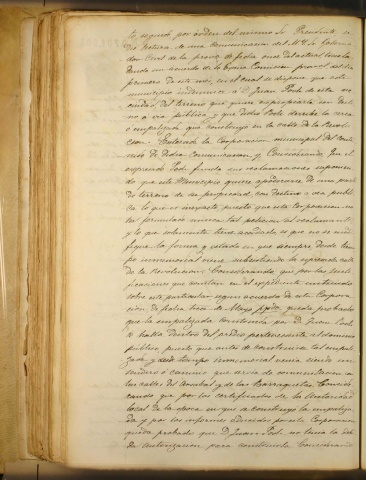 to seguido por orden del mismo Sr. Presidente se
dió lectura de una comunicacion del M. Y. Sr. Gober
dor Civil de la prova de fecha once del actual
dando un acuerdo de la Comision proval del dia
primero de este mes, en el cual se dispone que este
municipio indemnice á D. Juan Poch de esta ve
cindad, del terreno que quiere espropiarle con desti
no á via pública y que dicho Poch derribe la cerca
ó empalizada que construyó en la calle de la Revolu
cion. Enterada la Corporacion municipal del conte
nido de dicha comunicacion, y Considerando. Que el
espresado Poch funda sus reclamaciones suponien
do que este Municipio quiere apoderarse de una parte
de terreno de su propiedad, con destino á via públi
ca lo que es inexacto, puesto que esta Corporacion no
ha formulado nunca tal peticion al reclamante
y lo que solamente tiene acordado es que no se modi
fique la forma y estado en que siempre desde tiem
po inmemorial viene subsistiendo la espresada calle
de la Revolucion. Considerando, que por las justi
ficaciones que resultan en el espediente instruido
sobre este particular segun acuerdo de esta Corpora
cion de fecha trece de Mayo queda probado
que la empalizada construida por D. Juan Poch
se halla dentro del perteneciente al dominio
público, puesto que antes de construirse tal empali
zada y desde tiempo inmemorial venia siendo un
sendero ó camino que servia de comunicacion á
las calles del y de las Barraquetas. Conside
rando que por los certificados de la Autoridad
local de la época en que se construyó la empaliza
da y por los informes adquiridos por la Corporacion
queda probado que D. Juan Poch no tenia la debi
da autorizacion para construirla. Considerando